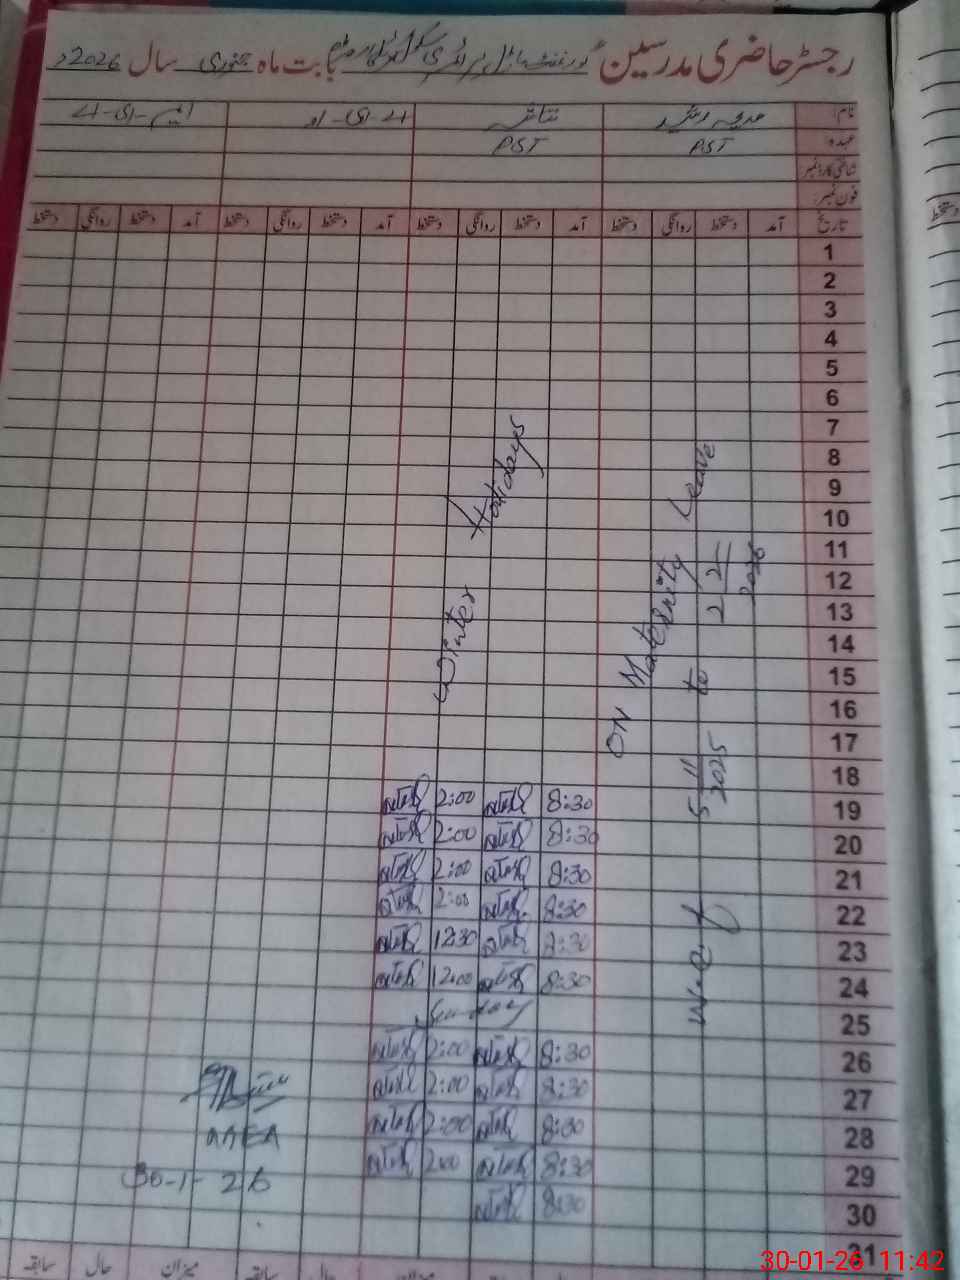 رجسٹر حاضری مدرسین گورنمنٹ پرائمری سکول بابت ماہ جنوری سال 2026ء
نام:
عہدہ PST PST
شناختی کارڈ نمبر
فون نمبر:
تاریخ آمد دستخط روانگی دستخط آمد دستخط روانگی دستخط آمد دستخط روانگی دستخط آمد دستخط روانگی دستخط
1
2
3
4
5
6
7
8
9
10
11
12
13
14
15
16
17
18
19 8:30 2:00
20 8:30 2:00
21 8:30 2:00
22 8:30 2:00
23 8:30 12:30
24 8:30 12:00
25 Sunday
26 8:30 2:00
27 8:30 2:00
28 8:30 2:00
29 8:30 2:00
30 8:30
31
Winter Holidays
ON Maternity Leave
w.e.f 5-11-2025 to 2-2-2026
AAEA
30-1-26
میزان حال سابقہ میزان حال سابقہ
30-01-26 11:42